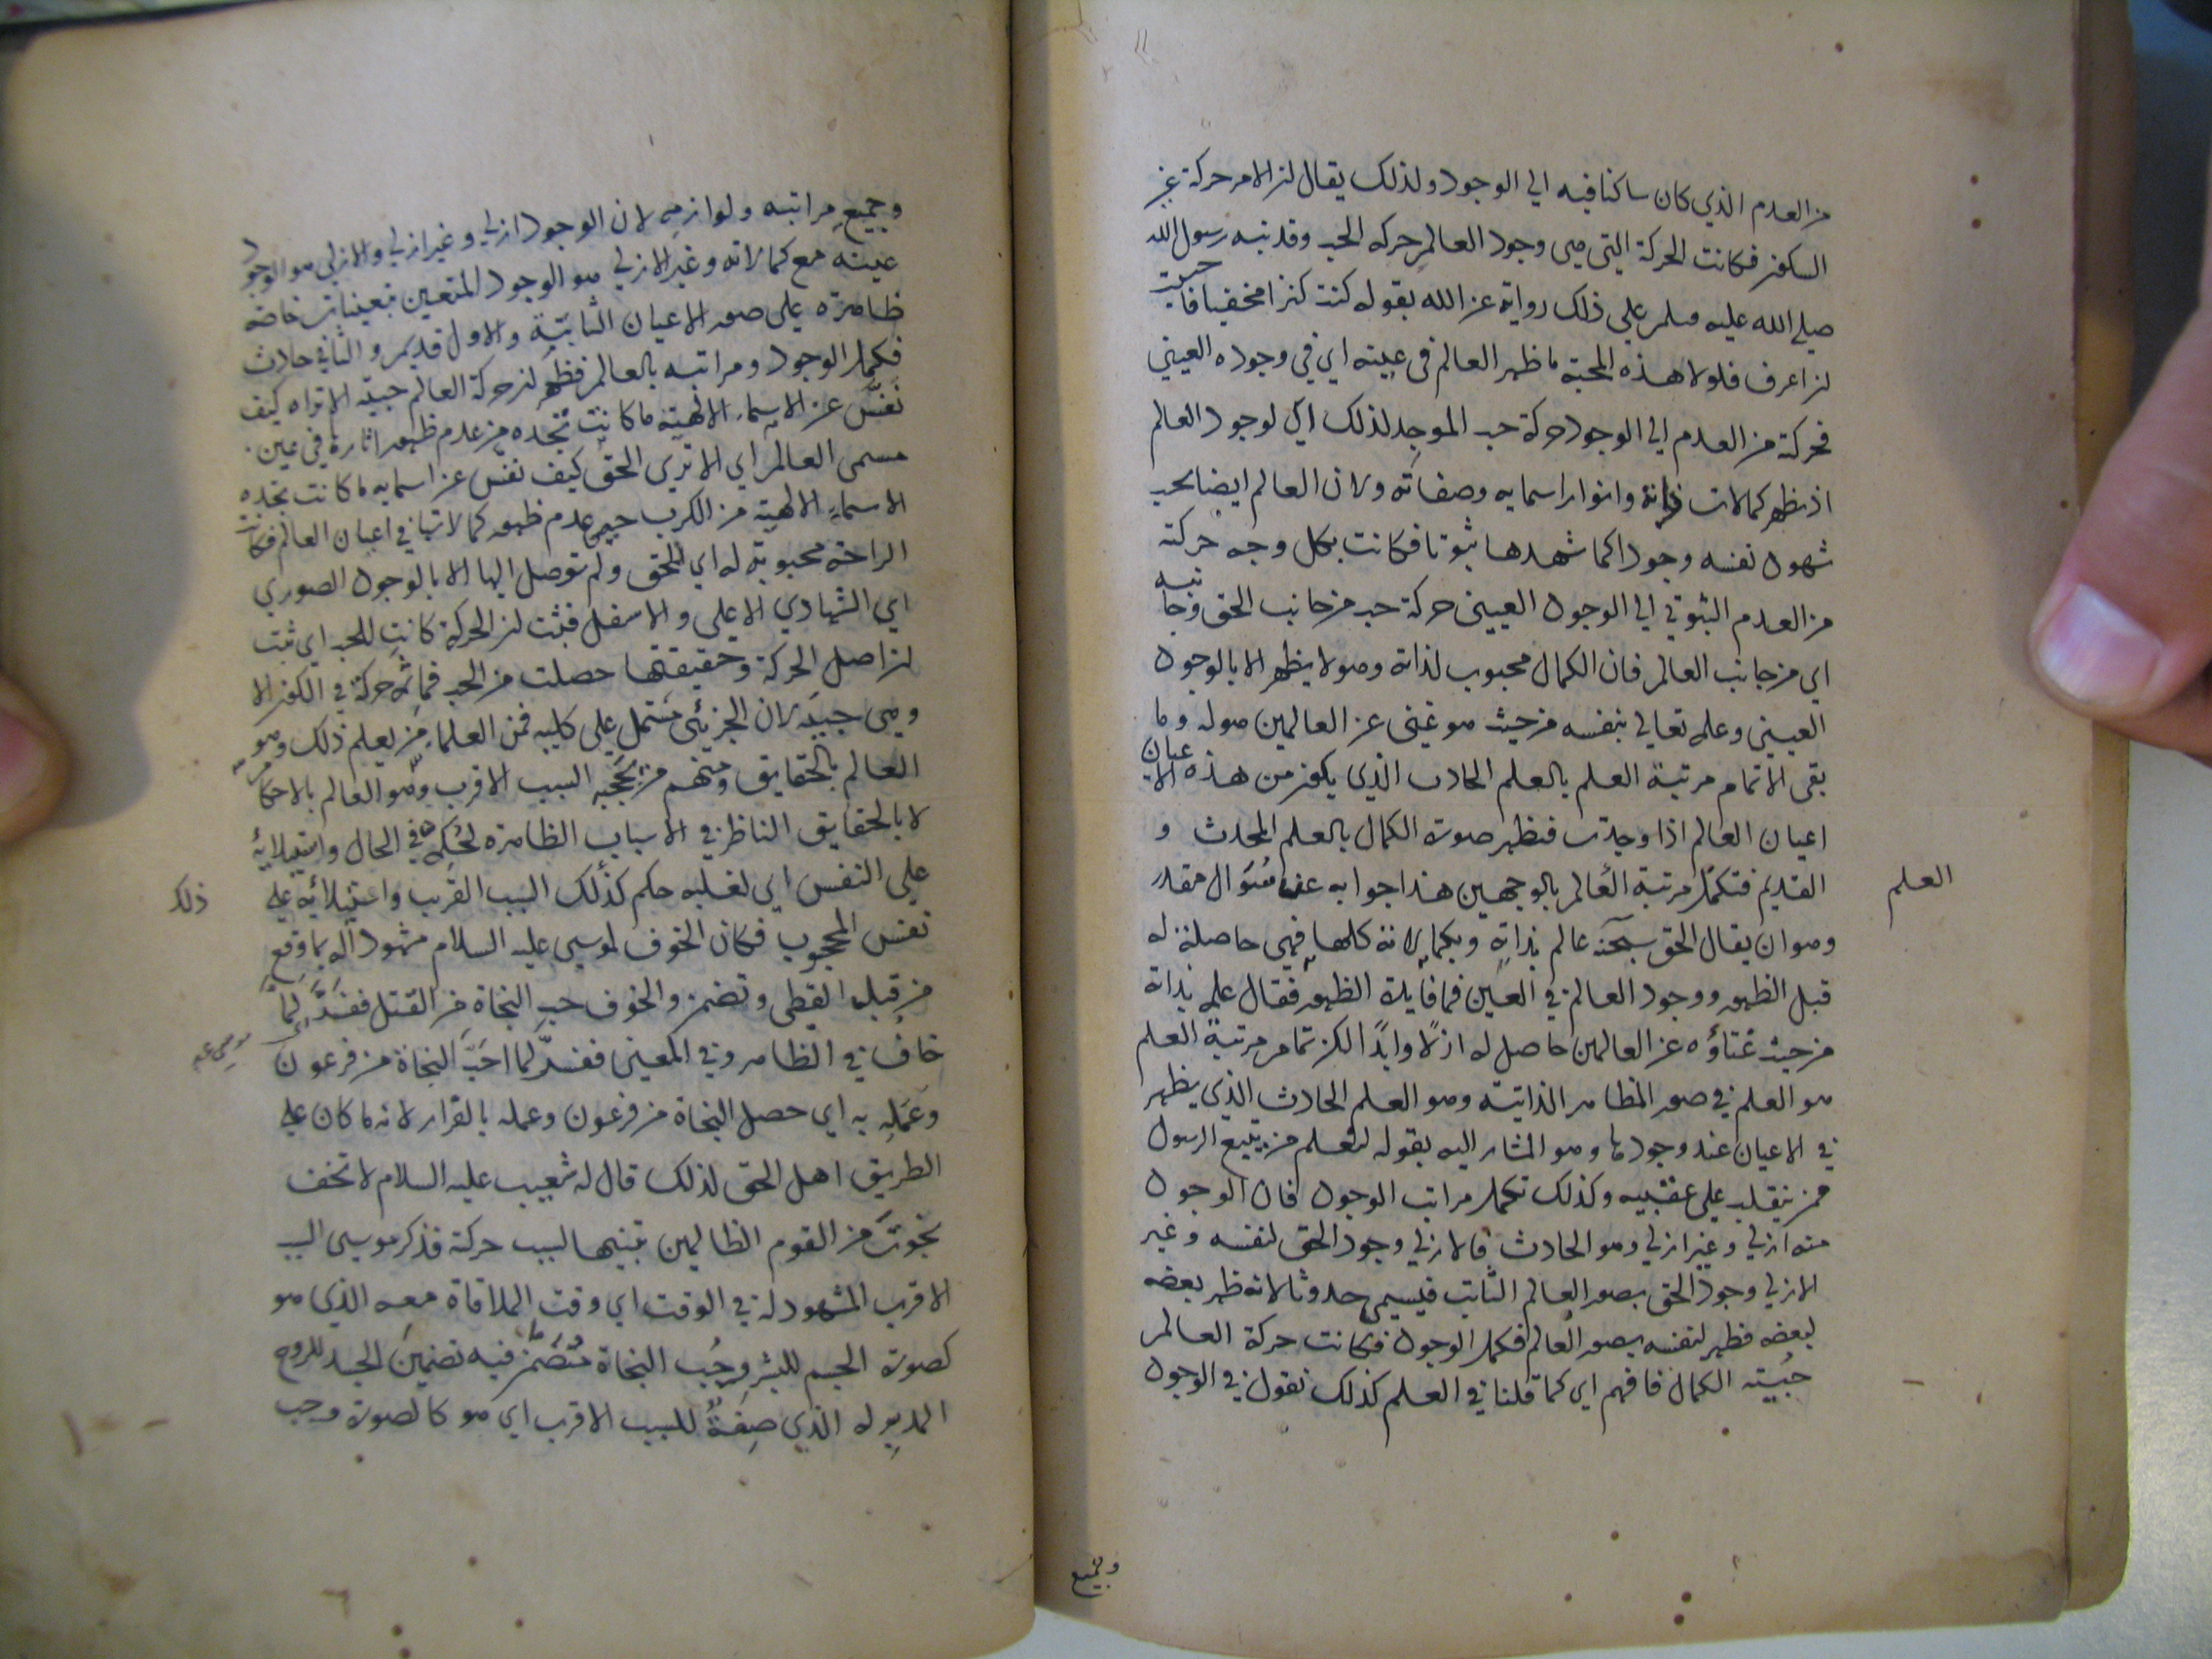 من العدم الذي كان ساكنا فيه الي الوجود ولذلك يقال لنر الامر حركة عن
السكون فكانت الحركة التي هي وجود العالم حركه الحب وقد نبه رسول الله
صلي الله عليه وسلم علي ذلك رواية عن الله بقوله كنت كنزا مخفيا فاحببت
لنر اعرف فلولا هذه المحبة ما ظهر العالم في عينه اي في وجوده العيني
فحركته من العدم الي الوجود حركة حب الموجد لذلك اي لوجود العالم
اذ يظهر كمالات ذاته وانوار اسمايه وصفاته ولان العالم ايضا يحب
شهود نفسه وجودا كما شهدها ثبوتا فكانت بكل وجه حركته
من العدم الثبوتي الي الوجود العيني حركة حب من جانب الحق وجانبه
اي من جانب العالم فان الكمال محبوب لذاته وهو لا يظهر الا بالوجود
العيني وعلمه تعالي بنفسه من حيث هو غني عن العالمين هو له وما
بقي الا تمام مرتبة العلم بالعلم الحادث الذي يكون من هذه الاعيان
اعيان العالم اذا وجدت فتظهر صورة الكمال بالعلم المحدث و
القديم فتكمل مرتبة العالم بالوجهين هذا جوابه عن سؤال مقدر
العلم
وهو ان يقال الحق سبحنه عالم بذاته وبكمالاته كلها فهي حاصلة له
قبل الظهور ووجود العالم في العين فما فايدة الظهور فقال علمه بذاته
من حيث غناؤه عن العالمين حاصل له ازلا وابدا لكن تمام مرتبة العلم
هو العلم في صور المظاهر الذاتية وهو العلم الحادث الذي يظهر
في الاعيان عند وجودها وهو المشار اليه بقوله لنعلم من يتبع الرسول
ممن ينقلب علي عقبيه وكذلك تكمل مراتب الوجود فان الوجود
منه ازلي وغير ازلي وهو الحادث فالازلي وجود الحق لنفسه وغير
الازلي وجود الحق بصور العالم الثابت فيسمي حدوثا لانه ظهر بعضه
لبعضه فظهر لنفسه بصور العالم فكمل الوجود فكانت حركة العالم
حبية الكمال فافهم اي كما قلنا في العلم كذلك نقول في الوجود
وجميع
وجميع مراتبه ولوازمه لان الوجود ازلي وغير ازلي والازلي هو الوجود
عينه مع كمالاته وغير الازلي هو الوجود المتعين بتعينات خاصة
ظاهرة علي صور الاعيان الثابتة والاول قديم والثاني حادث
فكمل الوجود ومراتبه بالعالم فظهر لنر حركة العالم حبية الا تراه كيف
نفس عن الاسماء الالهية ما كانت تجده من عدم ظهور اثاره في عين
مسمي العالم اي الا تري الحق كيف نفس عن اسمايه ما كانت تجده
الاسماء الالهية من الكرب حين عدم ظهور كمالاتها في اعيان العالم فكانت
الراحة محبوبة له اي للحق ولم توصل اليها الا بالوجود الصوري
اي الشهادي الاعلي والاسفل فثبت لنر الحركة كانت للحب اي ثبت
لنر اصل الحركة وحقيقتها حصلت من الحب فما ثم حركة في الكون الا
وهي حبية لان الجزئي مشتمل علي كليه فمن العلماء من يعلم ذلك وهو
العالم بالحقايق ومنهم من يحجبه السبب الاقرب وهو العالم بالاحكام
لا بالحقايق الناظر في الاسباب الظاهرة لحكمه في الحال واستيلايه
علي النفس اي لغلبه حكم كذلك السبب القريب واستيلائه علي
ذلك
نفس المحجوب فكان الخوف لموسي عليه السلام مشهودا له بما وقع
من قبله القبطي وتضمن والخوف حب النجاة من القتل ففر لما
خاف في الظاهر وفي المعني ففر لما احب النجاة من فرعون
وعمله به اي حصل النجاة من فرعون وعمله بالقرار لانه ما كان علي
الطريق اهل الحق لذلك قال له شعيب عليه السلام لا تخف
نجوت من القوم الظالمين تنبيها لسبب حركة فذكر موسي السبب
الاقرب المشهود له في الوقت اي وقت الملاقاة معه الذي هو
كصورة الجسم للبشر وحب النجاة متضمن فيه تضمين الجسد للروح
المدبر له الذي صفة للسبب الاقرب اي هو كالصورة وحب